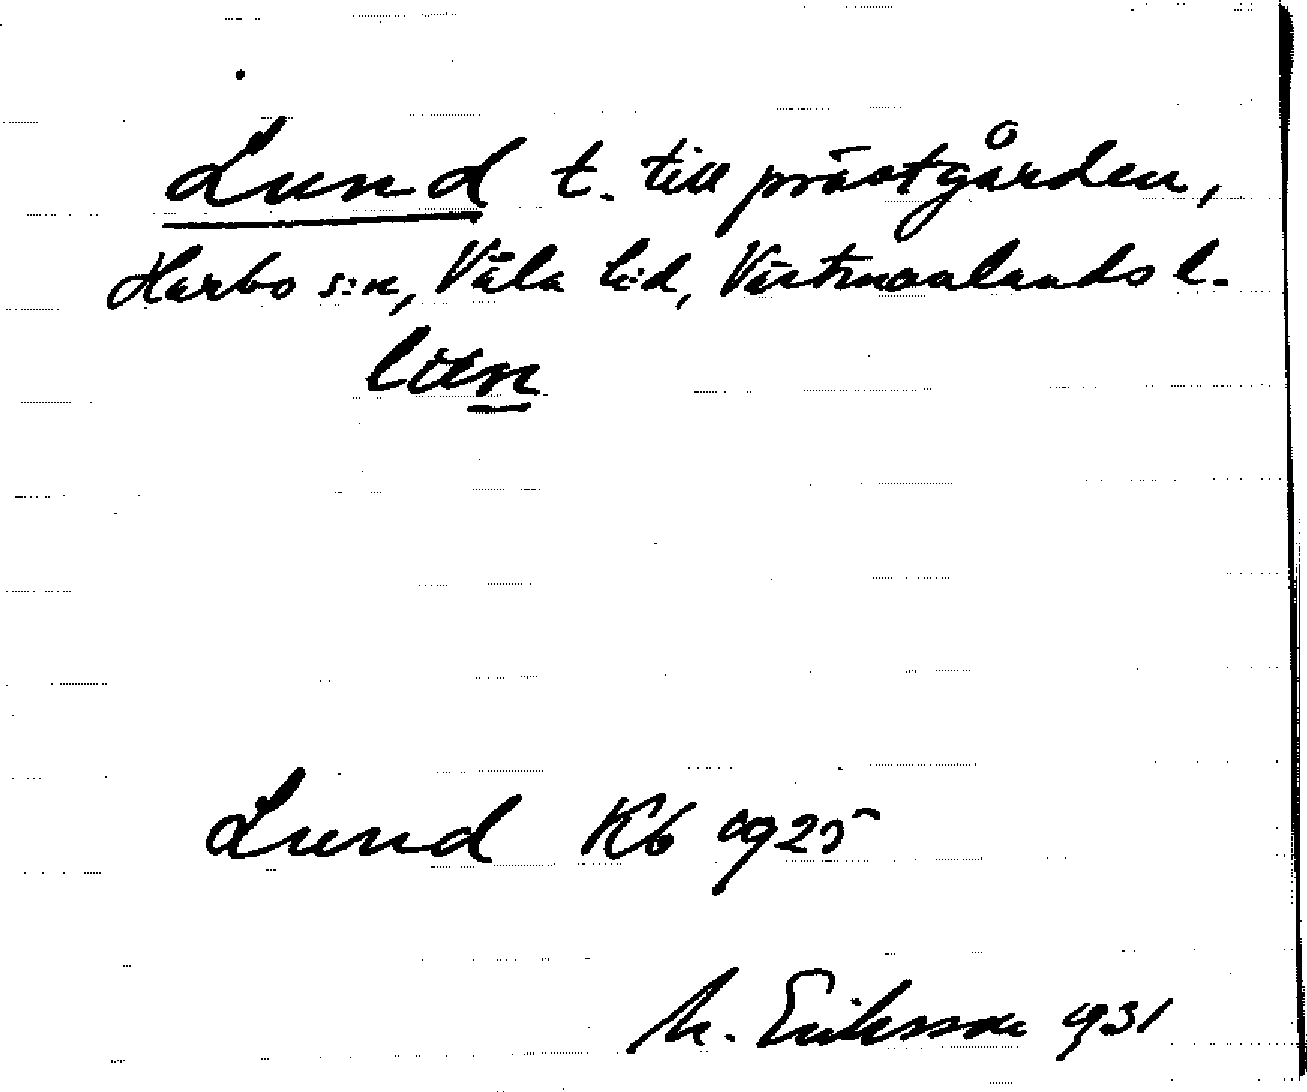 Lund t. till prästgården,
Harbo s:n, Våla h:d, Västmanlands l.
Lund Kb 1925
M. Eriksson 1931